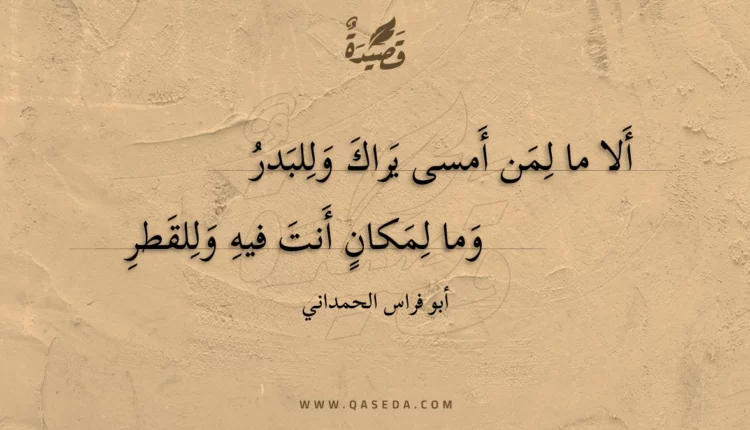 قَصِيدَةٌ
أَلا ما لِمَن أَمسى يَراكَ وَلِلبَدرُ
وَما لِمَكانٍ أَنتَ فيهِ وَلِلقَطرِ
أبو فراس الحمداني
WWW.QASEDA.COM